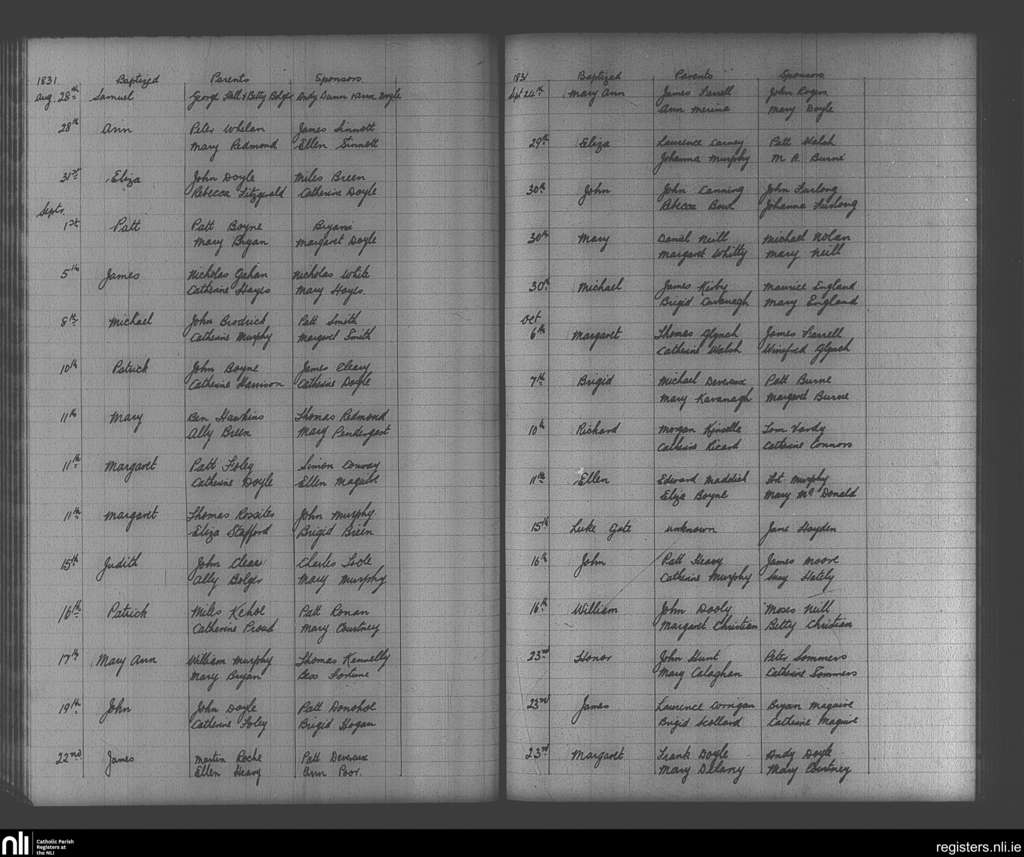 1831 Baptized Parents Sponsors
Aug. 28th Samuel George Hall & Betty Bolger Andy Dunn Anna Doyle
28th Ann Peter Whelan James Sinnott
Mary Redmond Ellen Sinnott
31st Eliza John Doyle Miles Breen
Rebecca Fitzgerald Catherine Doyle
Septr.
1st Patt Patt Boyne Bryan
Mary Bryan Margaret Doyle
5th James Nicholas Gahan Nicholas White
Catherine Hayes Mary Hayes
8th Michael John Brodrick Patt Smith
Catherine Murphy Margaret Smith
10th Patrick John Boyne James Cleary
Catherine Harrison Catherine Doyle
11th Mary Ben Hawkins Thomas Redmond
Ally Breen Mary Pendergast
11th Margaret Patt Foley Simon Conway
Catherine Doyle Ellen Maguire
11th Margaret Thomas Rossiter John Murphy
Eliza Stafford Brigid Breen
15th Judith John Clear Charles Toole
Ally Bolger Mary Murphy
16th Patrick Miles Kehoe Patt Ronan
Catherine Proud Mary Courtney
17th Mary Ann William Murphy Thomas Kennelly
Mary Bryan Bess Fortune
19th John John Doyle Patt Donohoe
Catherine Foley Brigid Hogan
22nd James Martin Roche Patt Devereux
Ellen Heavy Ann Poor
1831 Baptized Parents Sponsors
Sept 24th Mary Ann James Farrell John Rogers
Ann Mernia Mary Doyle
29th Eliza Laurence Carney Patt Walsh
Johanna Murphy M. A. Burne
30th John John Canning John Furlong
Rebecca Bowe Johanna Furlong
30th Mary Daniel Neill Michael Nolan
Margaret Whitty Mary Neill
30th Michael James Kirby Maurice England
Brigid Cavanagh Mary England
Oct
6th Margaret Thomas Glynch James Farrell
Catherine Walsh Winifred Glynch
7th Brigid Michael Devereux Patt Burne
Mary Kavanagh Margaret Burne
10th Richard Morgan Kinsella Tom Vardy
Catherine Ricard Catherine Connors
11th Ellen Edward Maddock Murphy
Eliza Boyne Mary Mc Donald
15th Luke Gate unknown Jane Hayden
16th John Patt Heavy James Moore
Catherine Murphy May Hately
16th William John Dooly Moses Neill
Margaret Christian Betty Christian
23rd Honor John Hunt Peter Sommers
Mary Calaghan Catherine Sommers
23rd James Laurence Corrigan Bryan Maguire
Brigid Scollard Catherine Maguire
23rd Margaret Frank Doyle Andy Doyle
Mary Delany Mary Courtney
nli Catholic Parish
Registers at
the NLI
registers.nli.ie